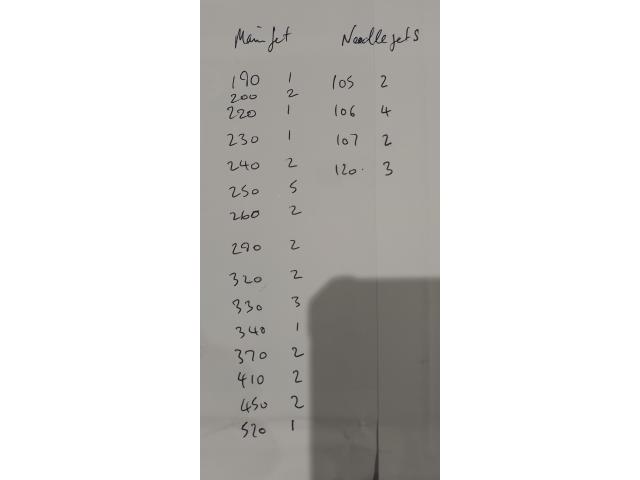 Main Jet Needle jets
190 1 105 2
200 2
220 1 106 4
230 1 107 2
240 2 120. 3
250 5
260 2
290 2
320 2
330 3
340 1
370 2
410 2
450 2
520 1